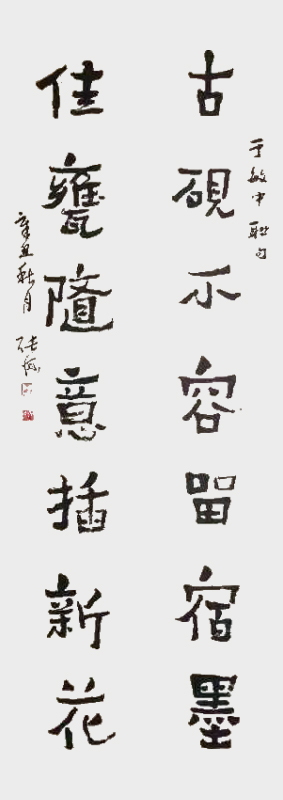 于敏中聯句
古硯不容留宿墨
佳甕隨意插新花
辛丑秋月